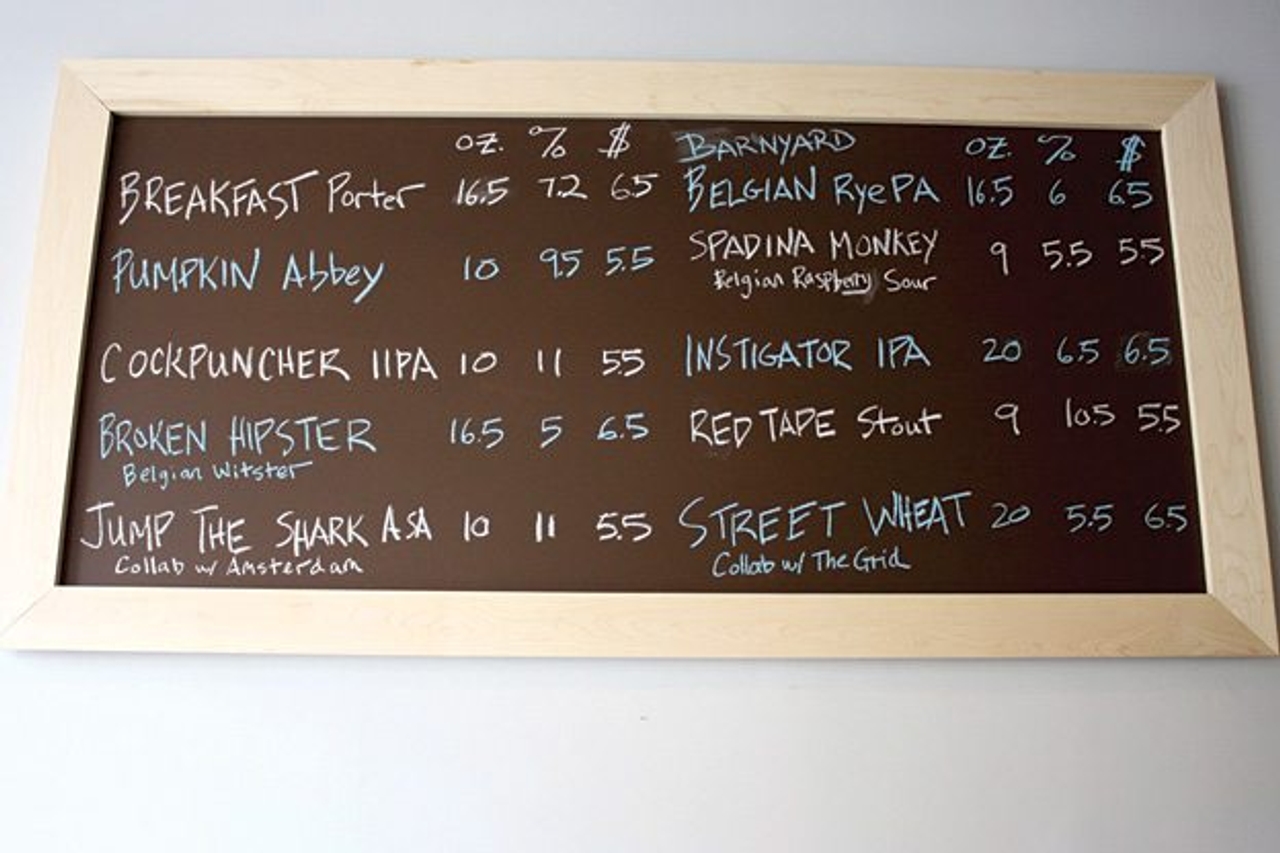 oz. % $
BREAKFAST Porter 16.5 7.2 6.5
PUMPKIN Abbey 10 9.5 5.5
COCKPUNCHER IIPA 10 11 5.5
BROKEN HIPSTER 16.5 5 6.5
Belgian Witster
JUMP THE SHARK ASA 10 11 5.5
Collab w/ Amsterdam
BARNYARD oz. % $
BELGIAN RyePA 16.5 6 6.5
SPADINA MONKEY 9 5.5 5.5
Belgian Raspberry Sour
INSTIGATOR IPA 20 6.5 6.5
RED TAPE Stout 9 10.5 5.5
STREET WHEAT 20 5.5 6.5
Collab w/ The Grid